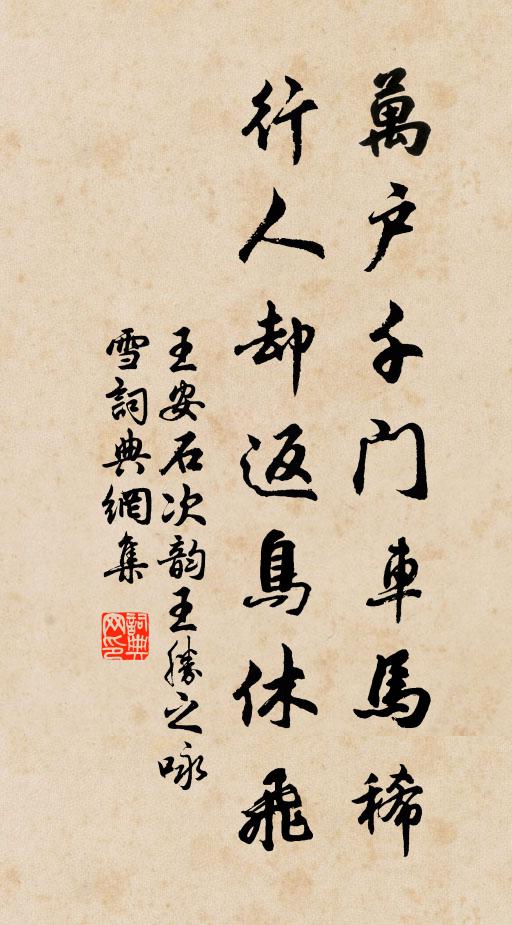 萬户千门車馬稀
行人却返鳥休飛
王安石次韵王勝之咏
雪詞典網集
詞典
网印